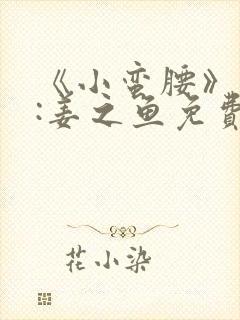 《小蛮腰》
:姜之鱼免费
花小染